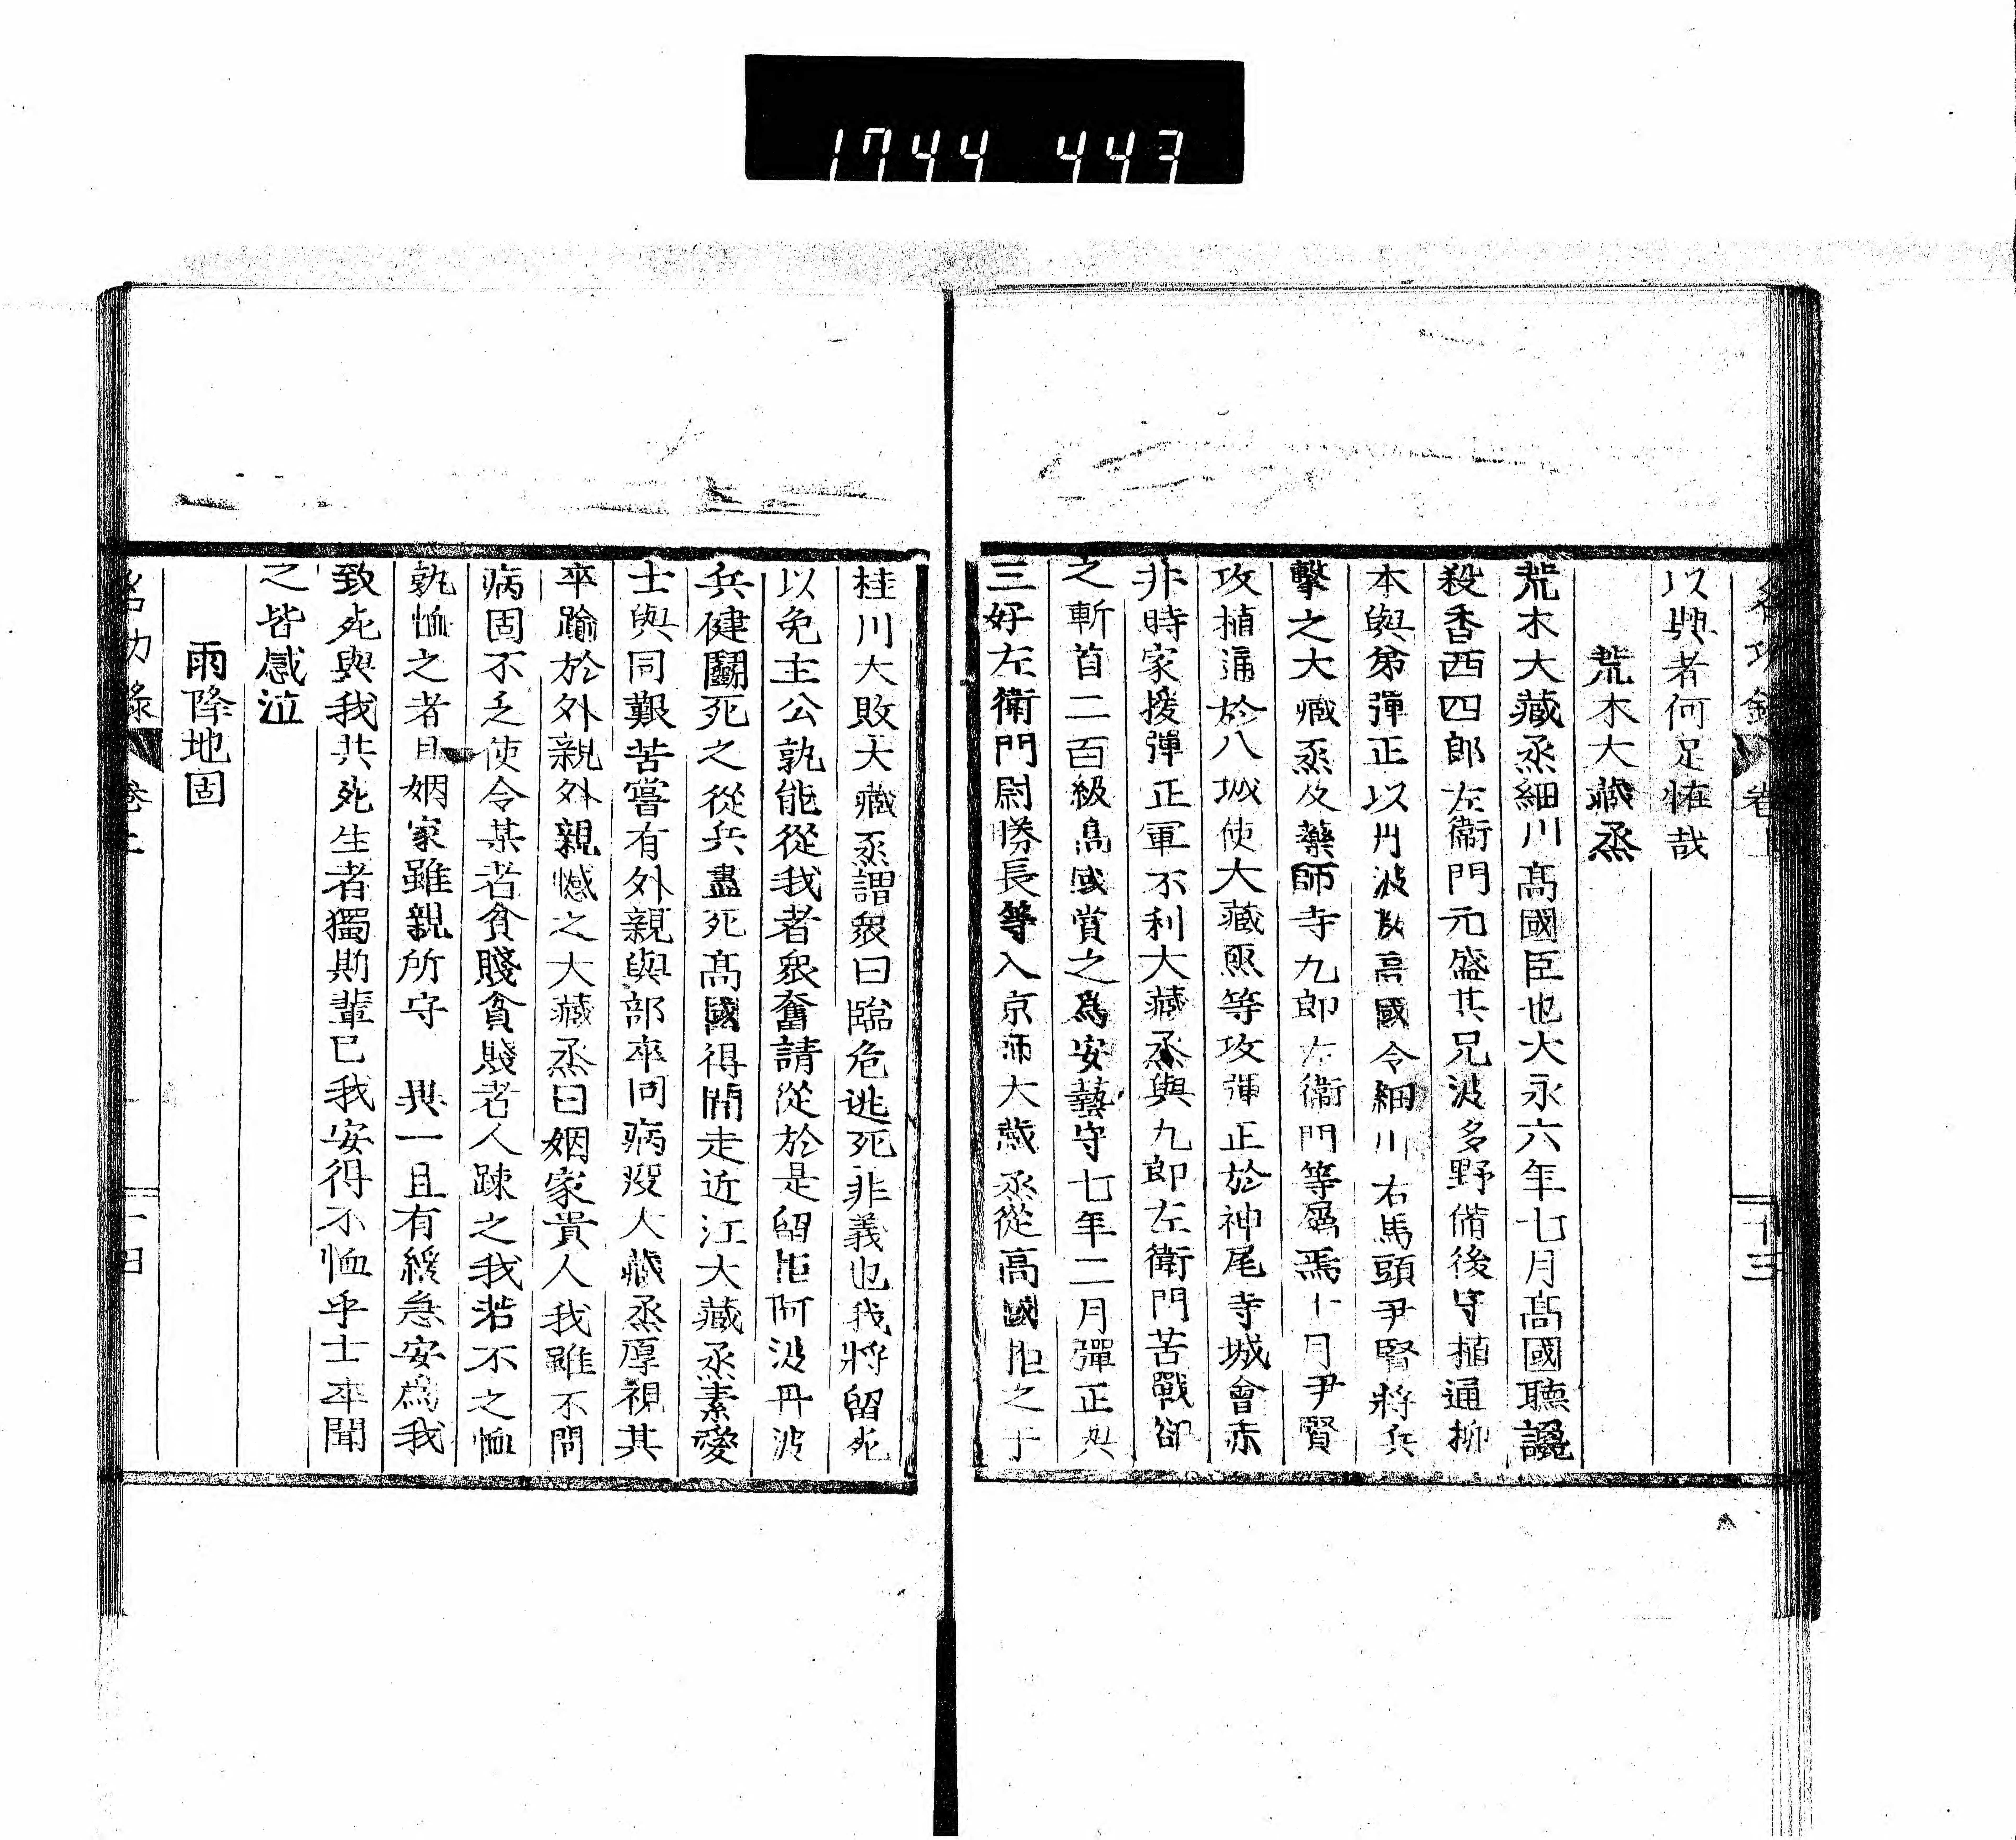 1744 443
以興者何足恠哉
荒木大藏烝
荒木大藏烝細川髙國臣也大永六年七月髙國聽讒
殺香西四郎左衛門元盛其兄波多野備後守植通柳
本與第彈正以丹波叛高國令細川右馬頭尹賢將兵
擊之大藏烝及藥師寺九郎左衛門等爲焉十月尹賢
攻植通於八城使大藏烝等攻彈正於神尾寺城會赤
井時家援彈正軍不利大藏烝與九郎左衛門苦戰卻
之斬首二百級髙國賞之爲安藝守七年二月彈正與
三好左衛門尉勝長等入京師大藏烝從高國拒之于
桂川大敗大藏烝謂衆曰臨危逃死非義也我將留死
以免主公孰能從我者衆奮請從於是留拒阿波丹波
兵健鬭死之從兵盡死髙國得間走近江大藏烝素愛
士與同艱苦嘗有外親與部卒同病疫大藏烝厚視其
卒踰於外親外親憾之大藏烝曰姻家貴人我雖不問
病固不乏使令某者貧賤貧賤者人踈之我若不之恤
孰恤之者且姻家雖親所守 異一旦有緩急安爲我
致死與我共死生者獨斯輩已我安得不恤乎士卒聞
之皆感泣
雨降地固